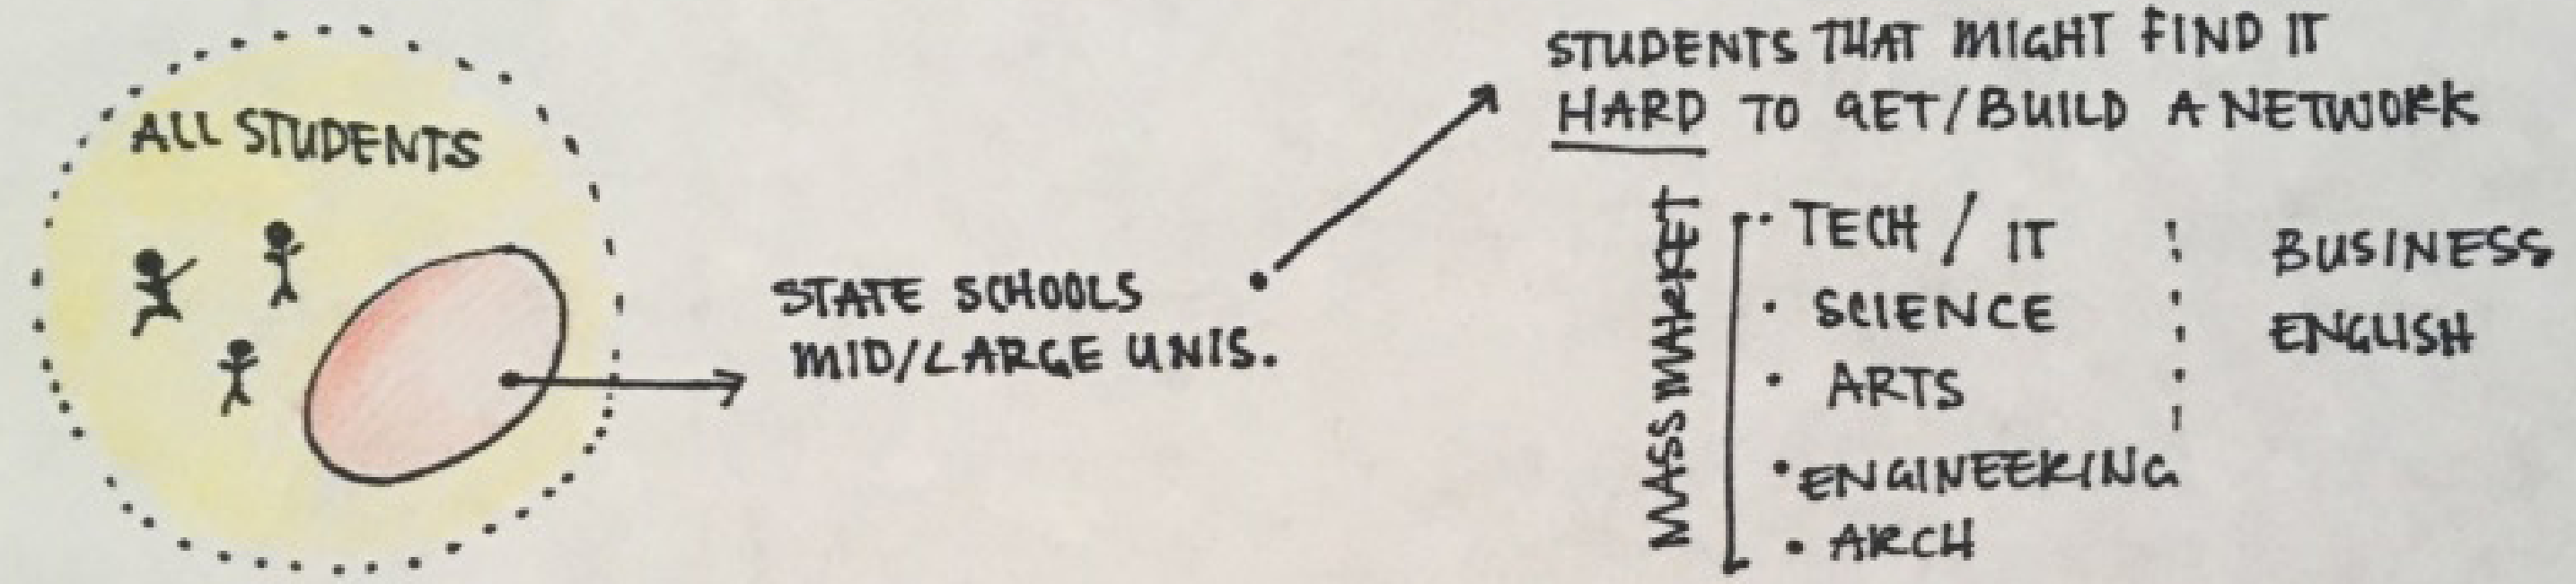 ALL STUDENTS
STATE SCHOOLS
MID/LARGE UNIS.
STUDENTS THAT MIGHT FIND IT
HARD TO GET/BUILD A NETWORK
MASS MARKET
• TECH / IT
• SCIENCE
• ARTS
• ENGINEERING
• ARCH
BUSINESS
ENGLISH